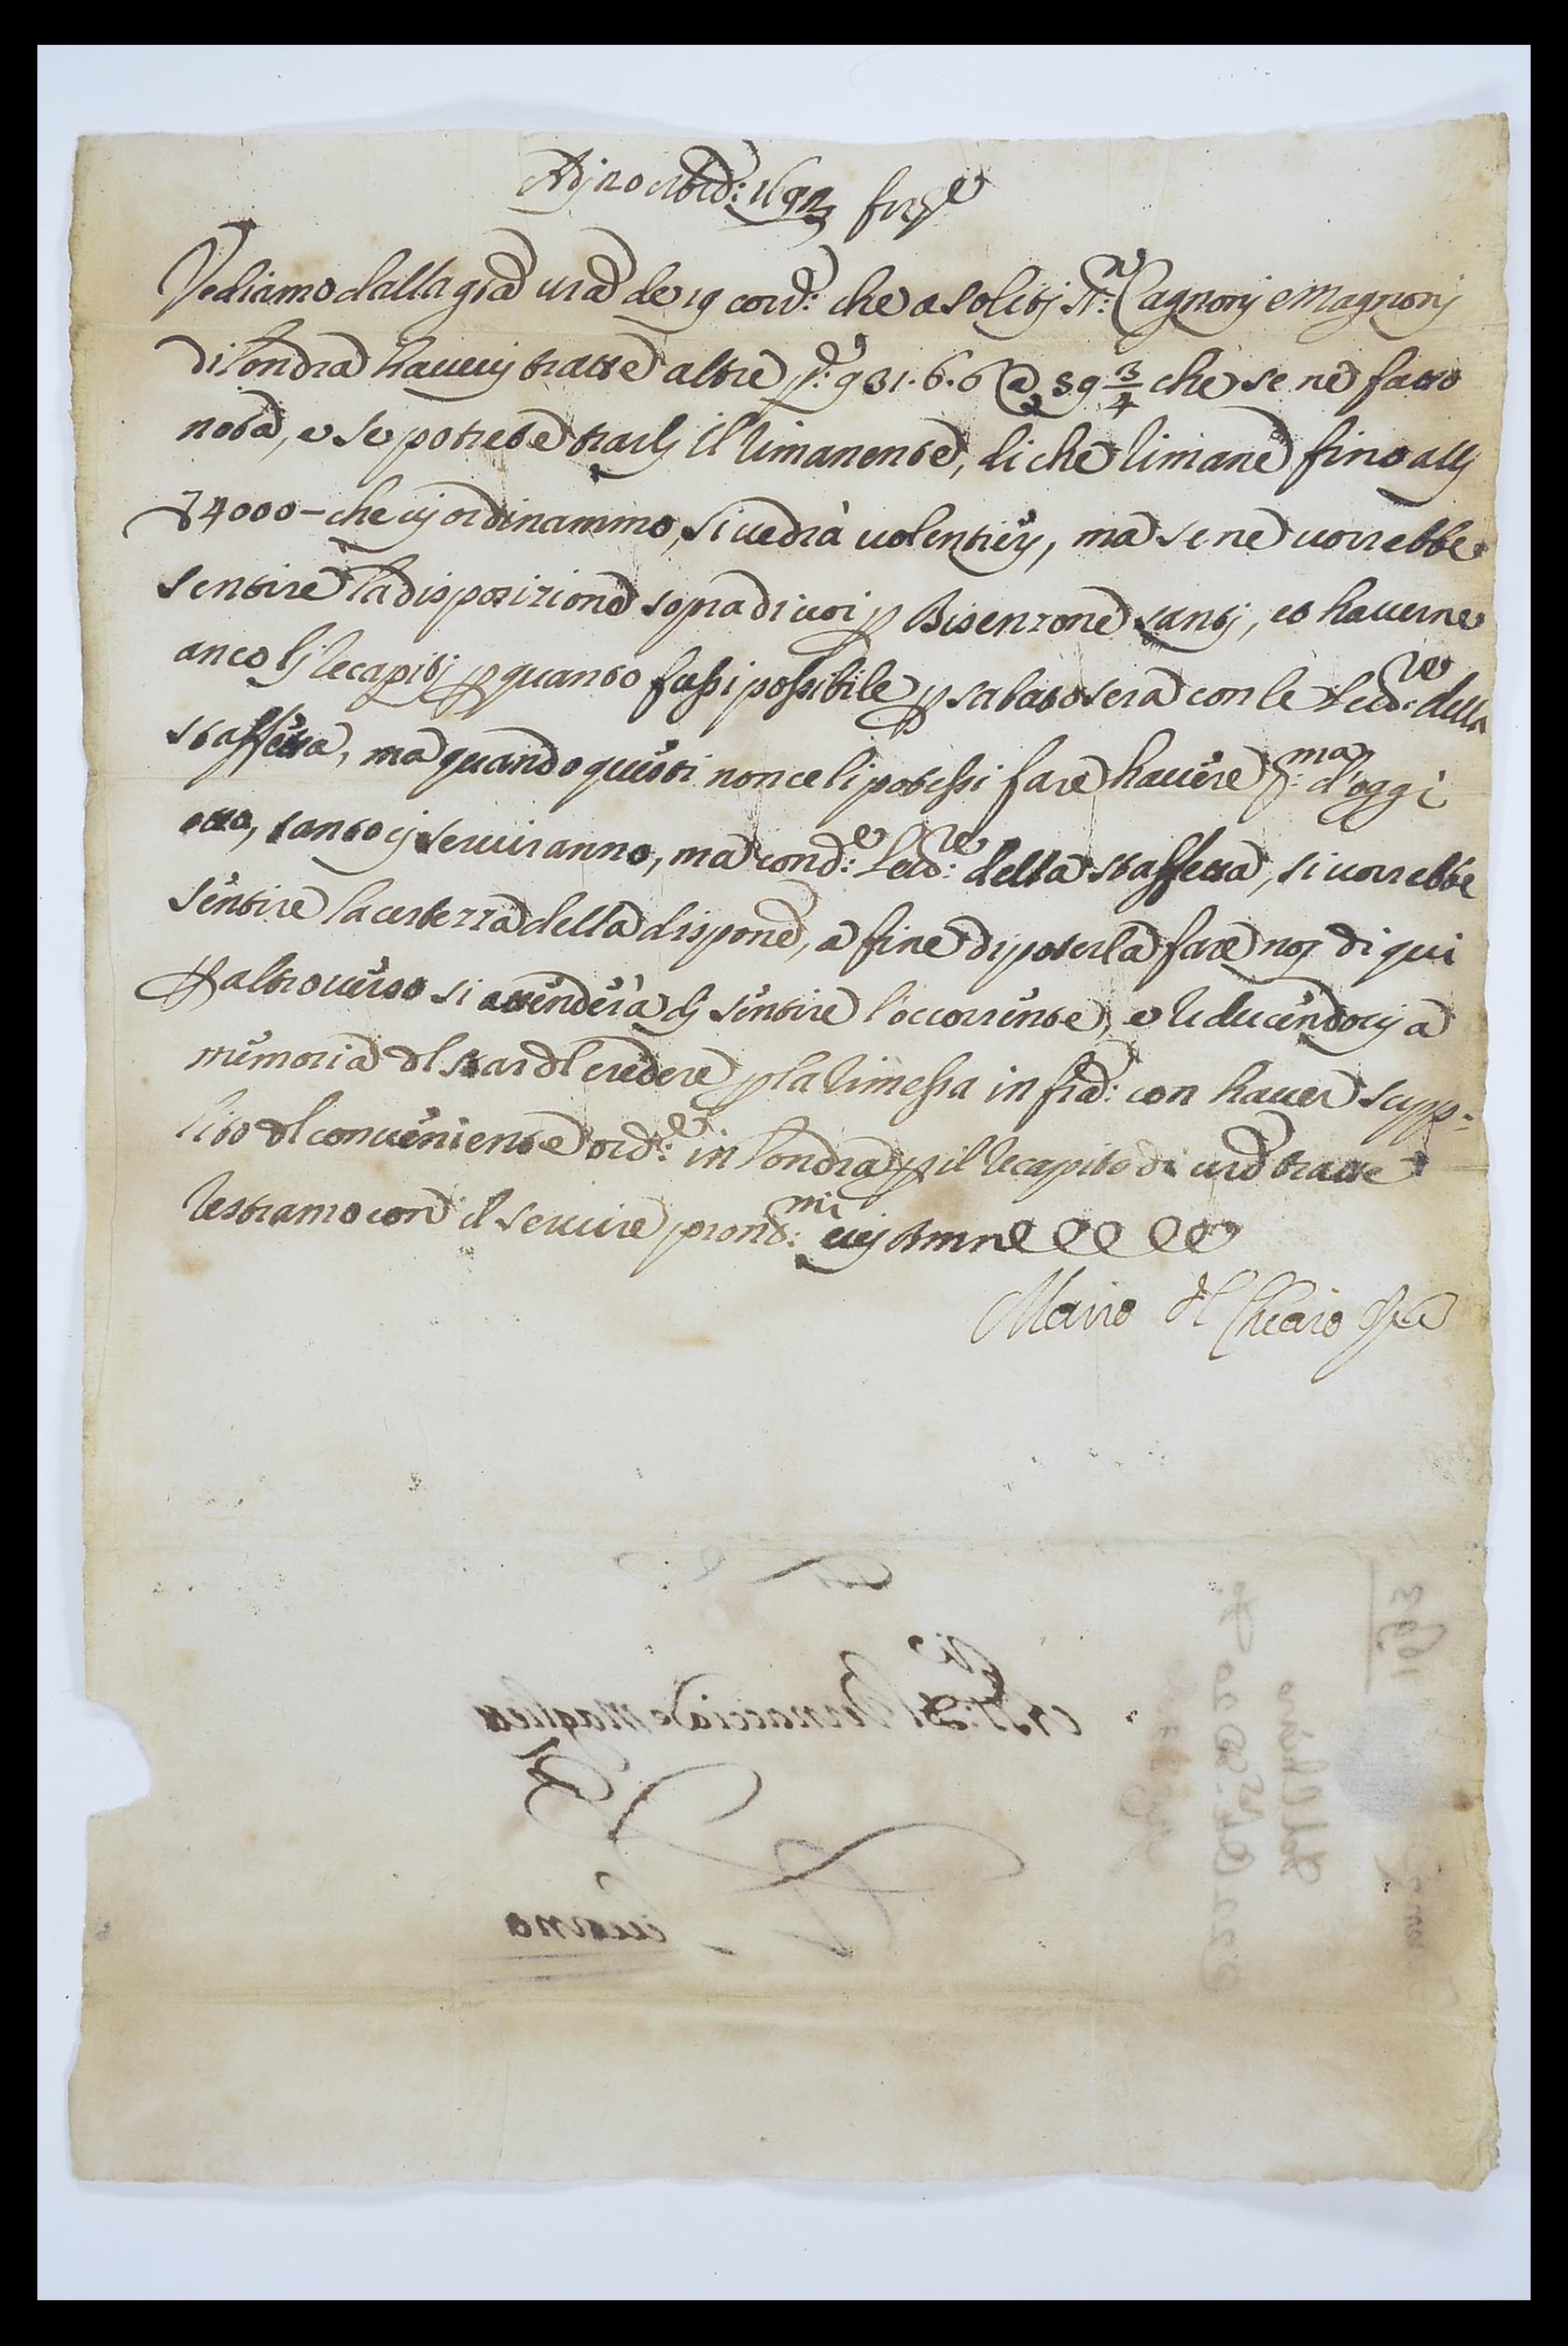 Adj 20 8bre: 1693 firze
Vediamo dalla gra vra de 19 corr.: che a soliti SS.ri Cagnonj e Magnonj
di Londra havevj tratte altre p.e 931.6.6 @ 59 3/4 che se ne fatto
nota, e se potrete trarlj il rimanente, di che rimane fino allj
∇ 4000 - che vj ordinammo, si vedrà volentierj, ma se ne vorrebbe
sentire la disposizione sopra di voi p Bisenzone santj, et haverne
anco lj recapitj p quanto fussi possibile p sabato sera con le lett.re della
staffetta, ma quando questi non ce li potessi fare havere p.ma d'oggi
otto, tanto cj serviranno, ma con d.e lett.re della staffetta, si vorrebbe
sentire la certezza della dispone, a fine di poterla fare noj di qui
p altro verso si attenderà dj sentire l'occorrente, e reducendovj a
memoria del star del credere p la rimessa in fra: con haver supp=
lito del conveniente ord.e in Londra p il recapito di vre tratte
restiamo con il servire prontt.mi vij Amne
Mario del Chiaro
Alli SS.ri Vernaccia e Maglietti
Livorno
1693